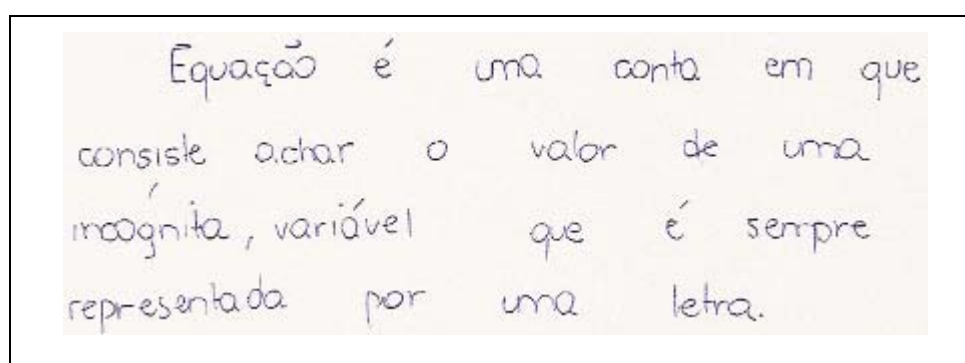 Equação é uma conta em que
consiste achar o valor de uma
incógnita, variável que é sempre
representada por uma letra.